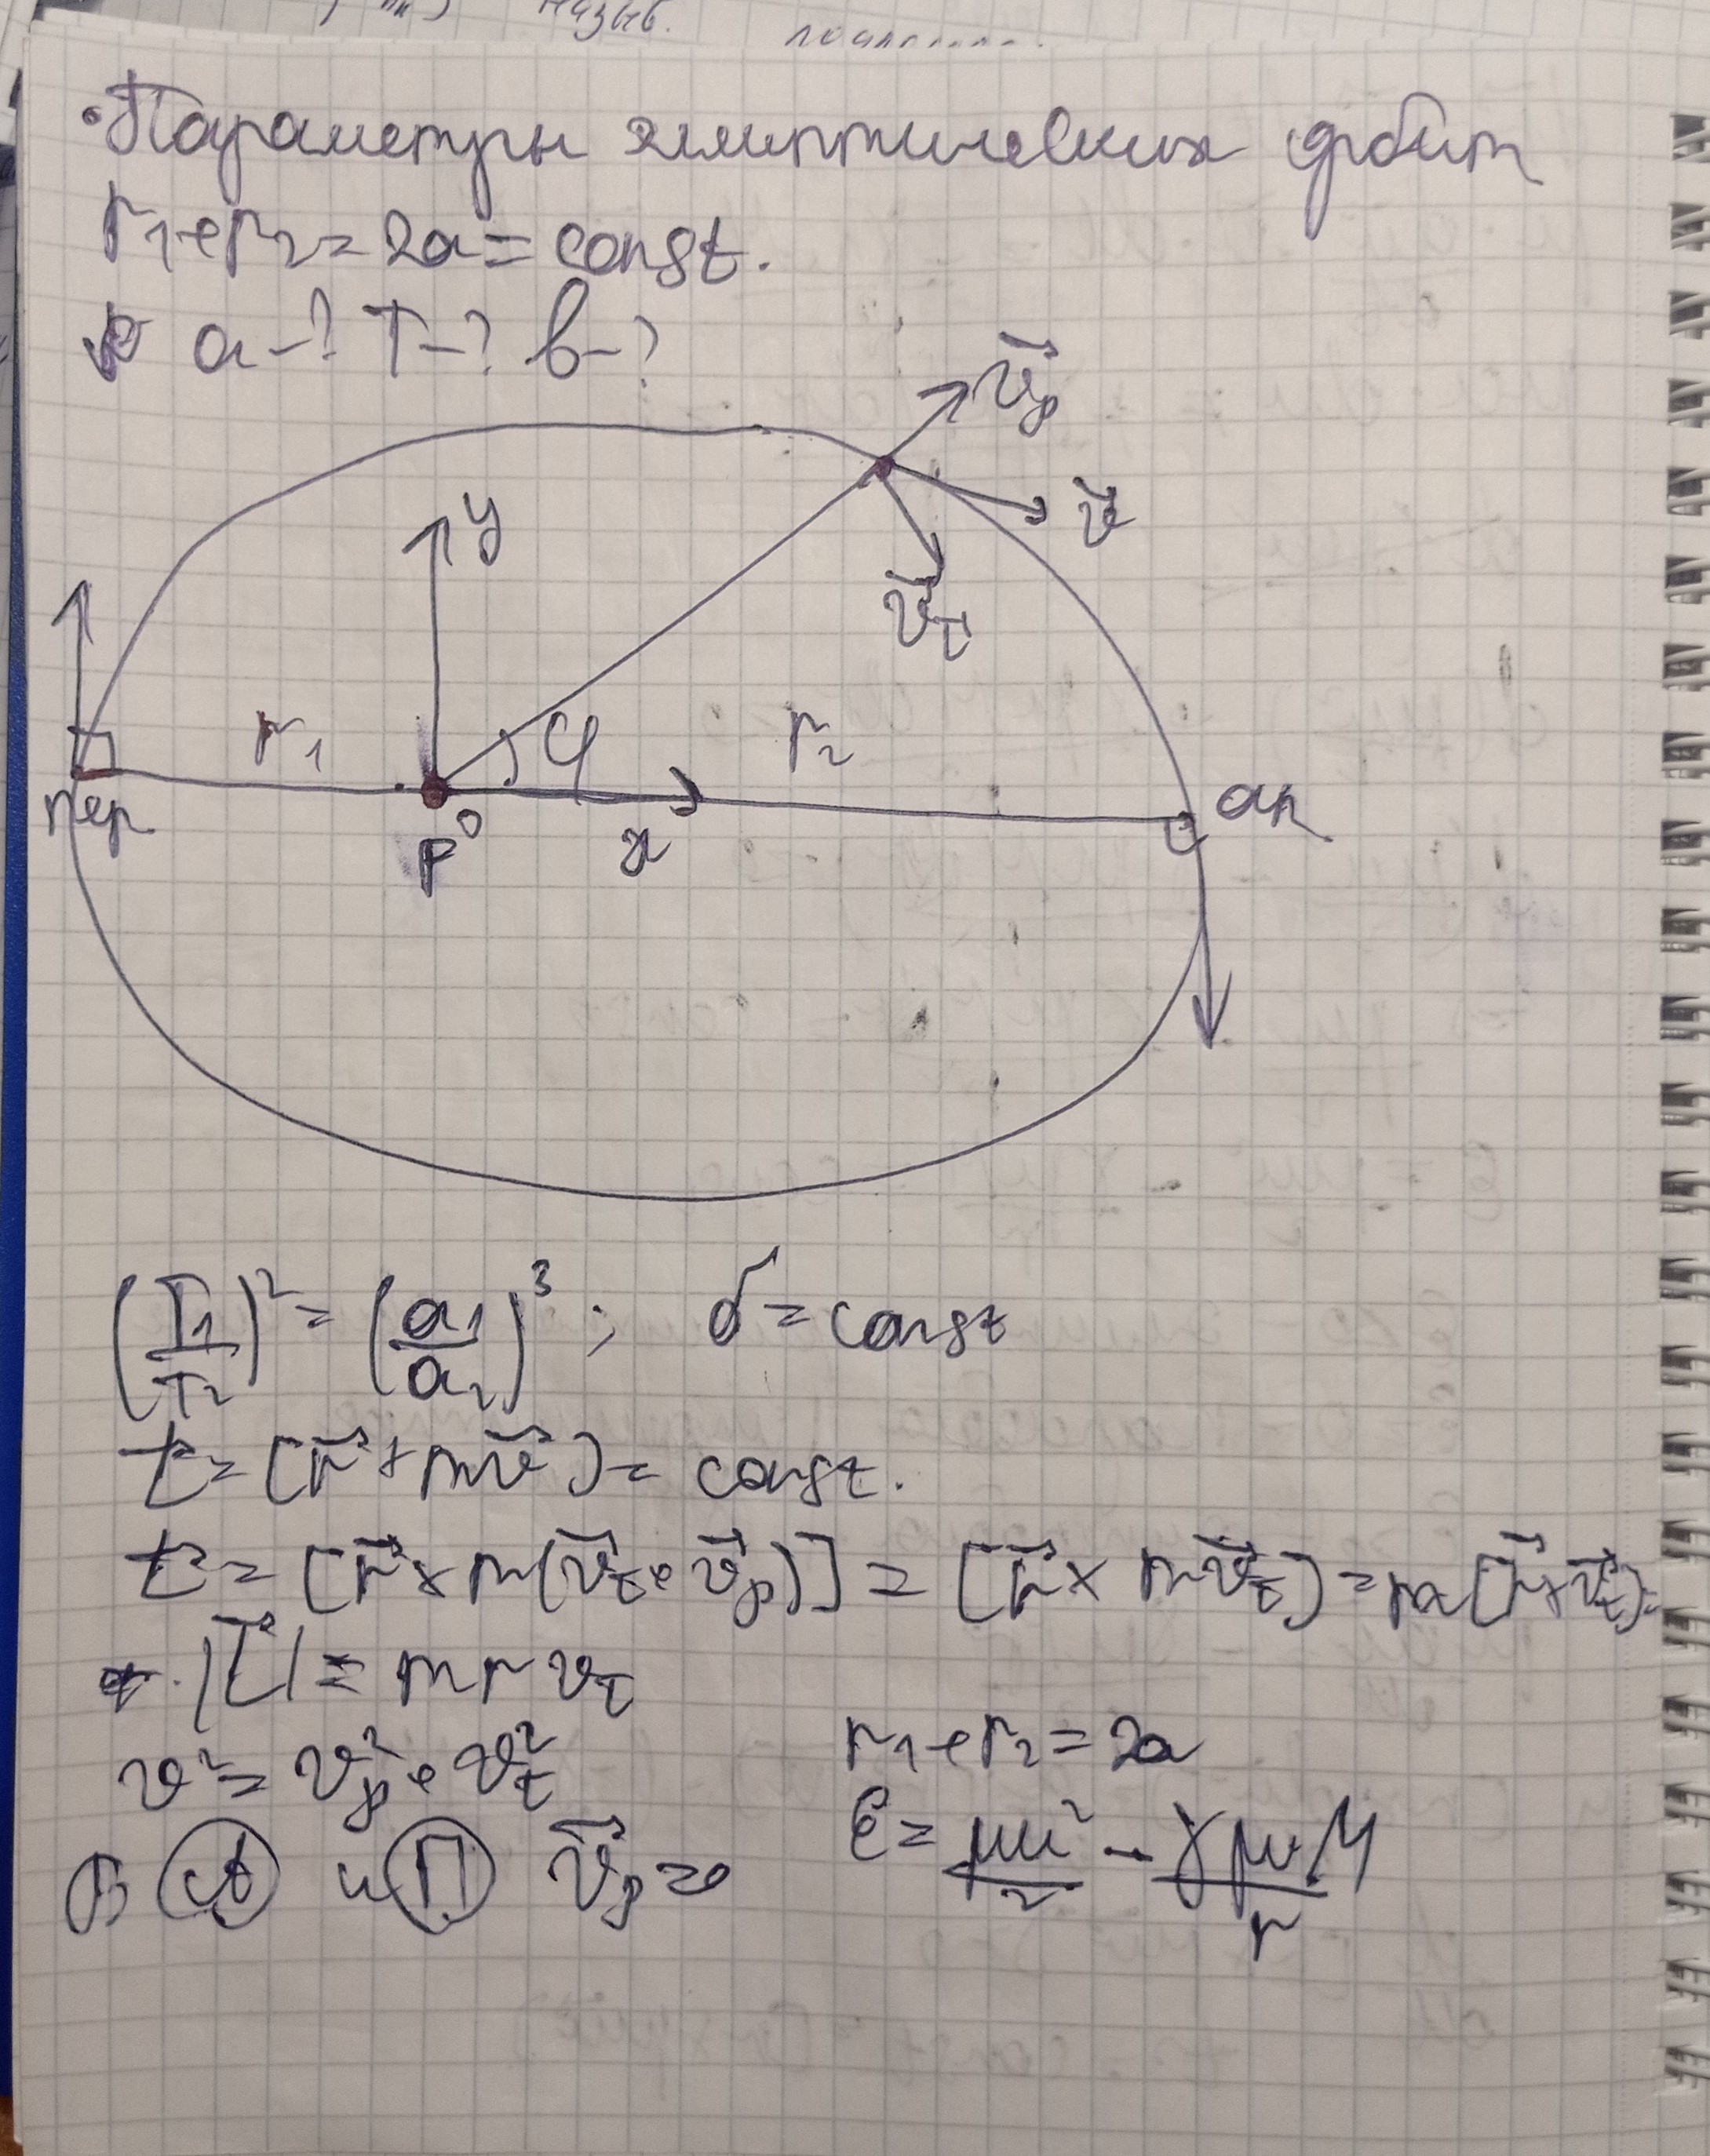 назыв.
• Параметры эллиптических орбит
r₁+r₂=2a=const.
a-? T-? b-?
v⃗ᵨ
v⃗
v⃗τ
y
r₁ φ r₂
пер. ап.
F 0 x
(T₁/T₂)² = (a₁/a₂)³ ; σ = const
L⃗ = [r⃗ × mv⃗] = const.
L⃗ = [r⃗ × m(v⃗τ + v⃗ᵨ)] = [r⃗ × mv⃗τ] = m[r⃗ × v⃗τ] =
|L⃗| = m r vτ
v² = vᵨ² + vτ²
r₁+r₂=2a
В (А) и (П) v⃗ᵨ=0
ε = mv²/2 - γmM/r